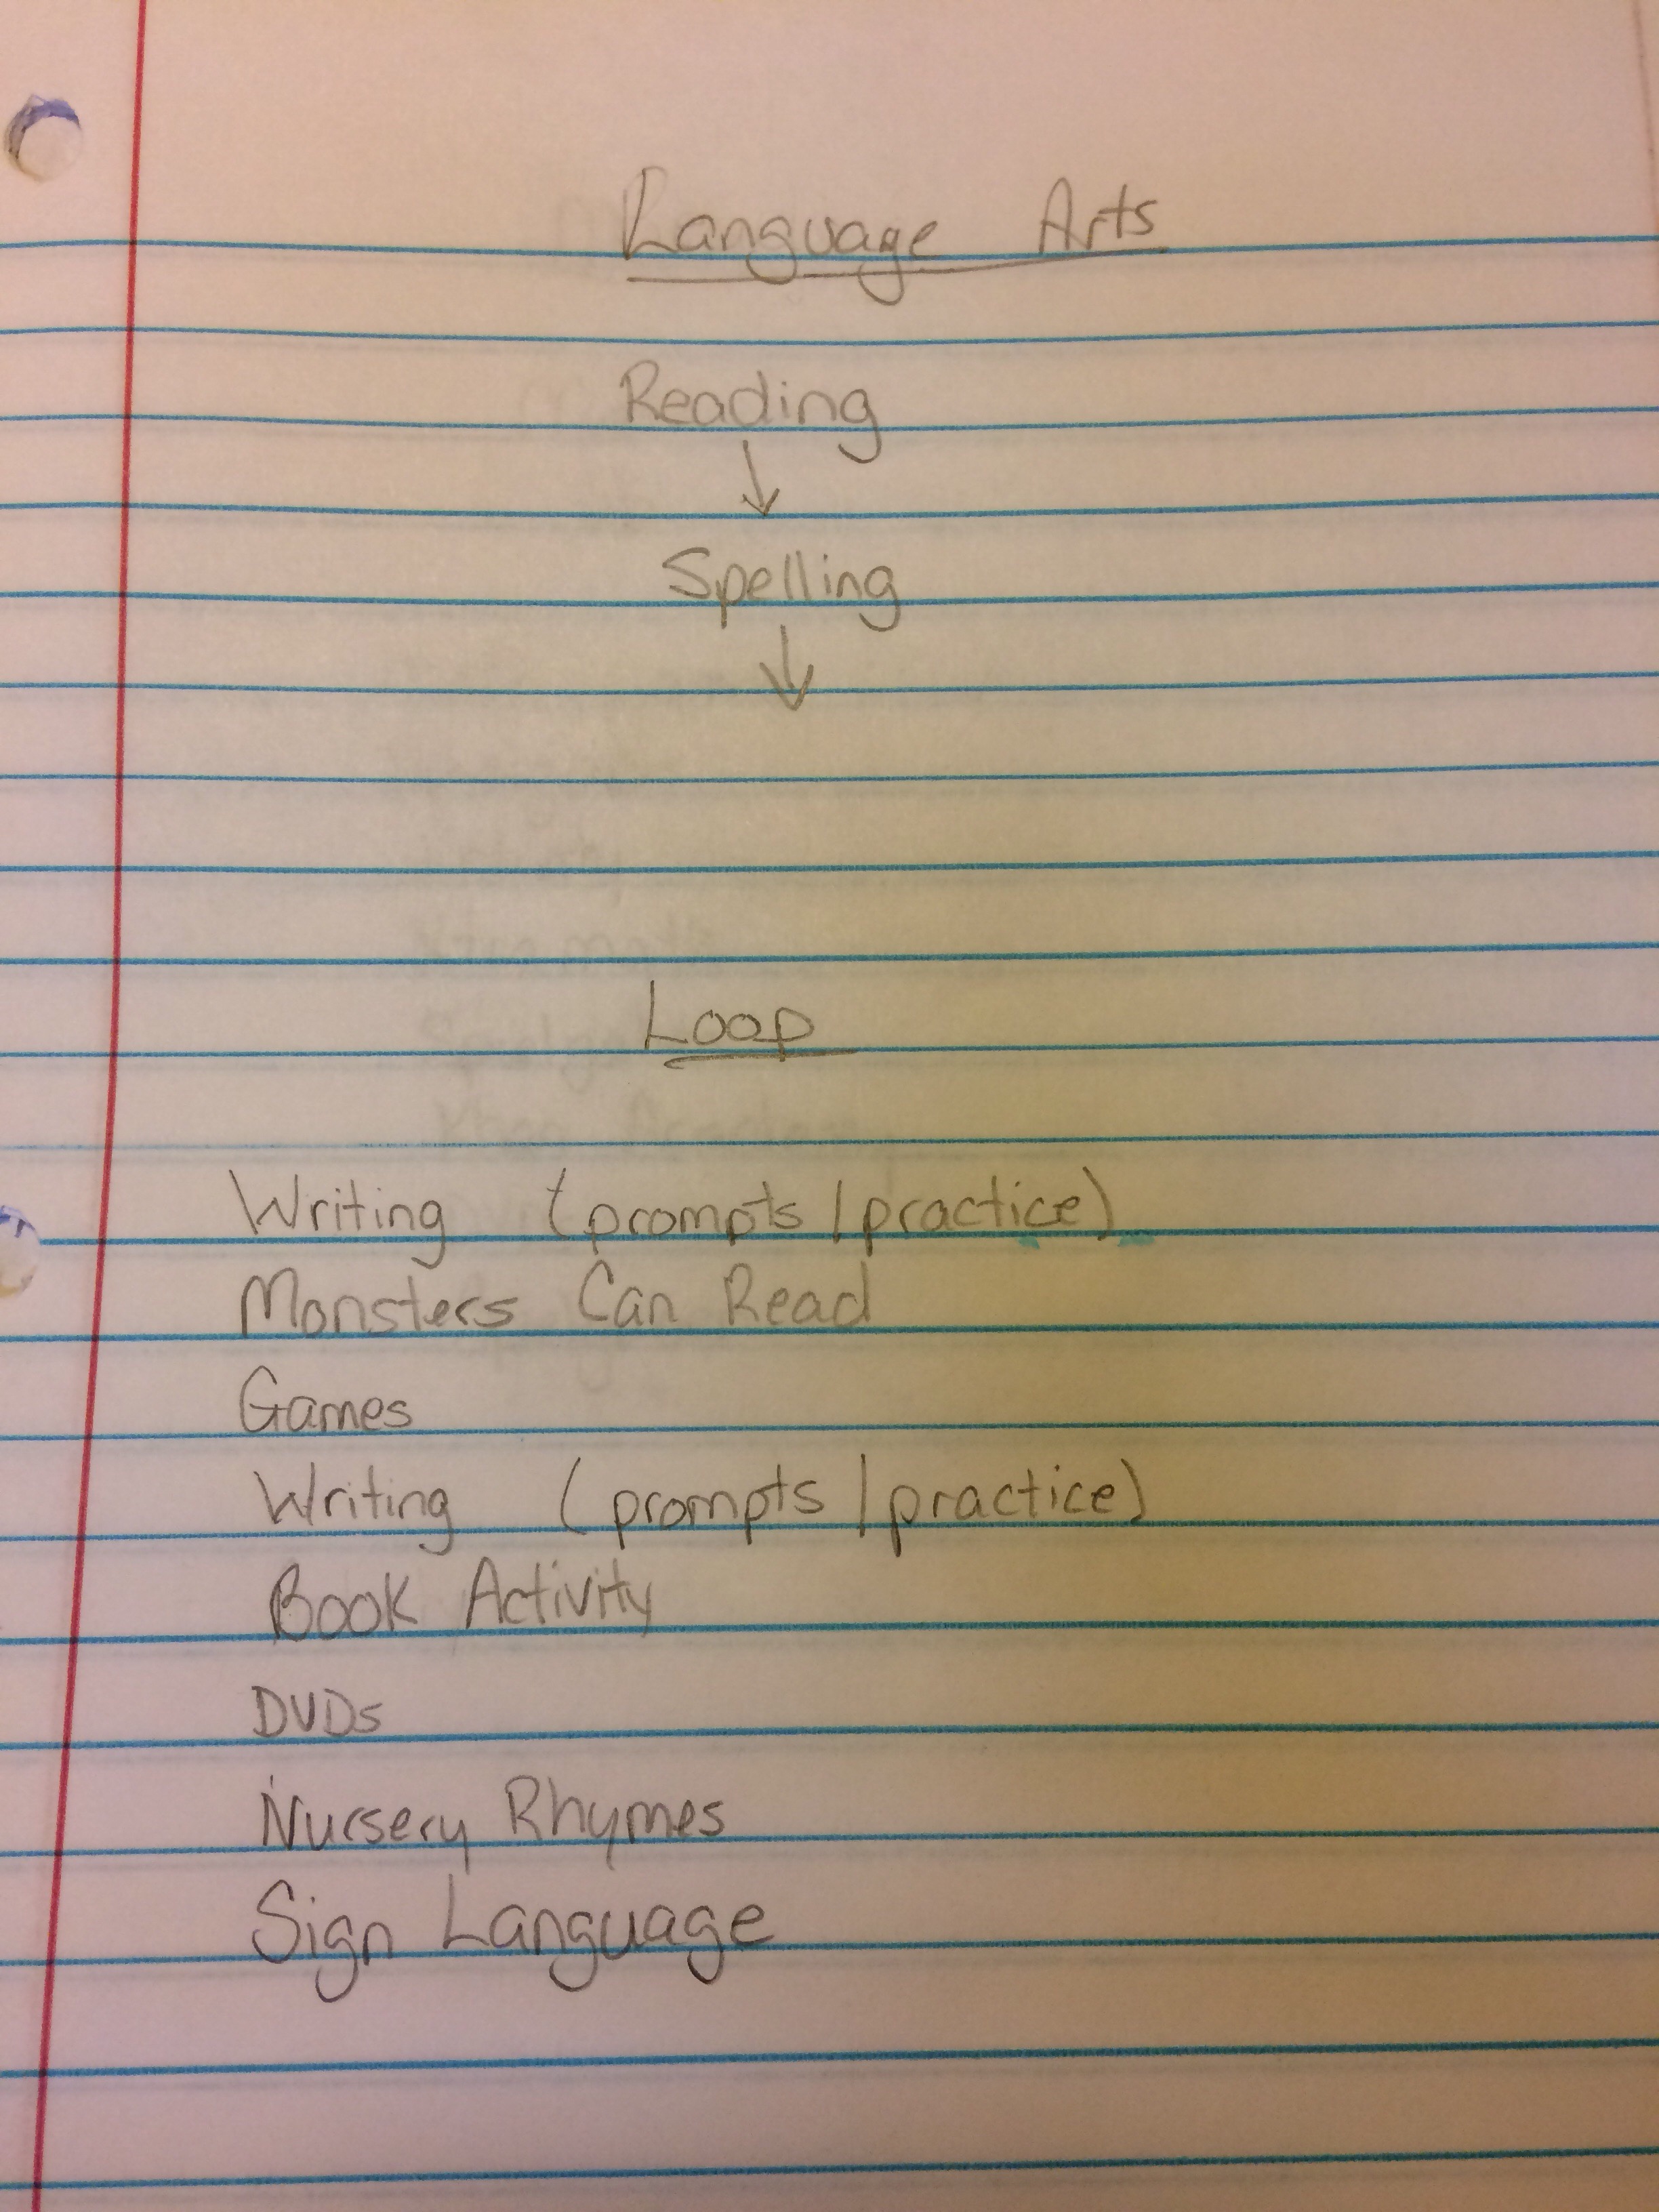 Language Arts
Reading
↓
Spelling
↓
Loop
Writing (prompts / practice)
Monsters Can Read
Games
Writing (prompts / practice)
Book Activity
DVDs
Nursery Rhymes
Sign Language